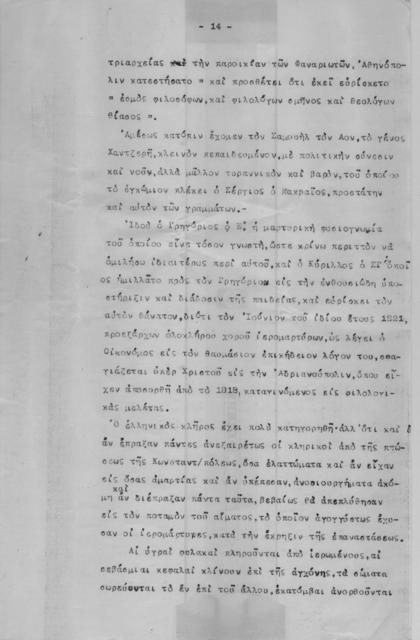 - 14 -
τριαρχείας καὶ τὴν παροικίαν τῶν Φαναριωτῶν, Ἀθηνόπο-
λιν κατεστήσατο " καὶ προσθέτει ὅτι ἐκεῖ εὑρίσκετο
" ἑσμὸς φιλοσόφων, καὶ φιλολόγων σμῆνος καὶ θεολόγων
θίασος ".
Ἀμέσως κατόπιν ἔχομεν τὸν Σαμουὴλ τὸν Αον, τὸ γένος
Χαντζερῆ, κλεινὸν πεπαιδευμένον, μὲ πολιτικὴν σύνεσιν
καὶ νοῦν, ἀλλὰ μᾶλλον τυραννικὸν καὶ βαρύν, τοῦ ὁποίου
τὸ ἐγκώμιον πλέκει ὁ Σέργιος ὁ Μακραῖος, προστάτην
καὶ αὐτὸν τῶν γραμμάτων.-
Ἰδοὺ ὁ Γρηγόριος ὁ Ε΄ ἡ μαρτυρικὴ φυσιογνωμία
τοῦ ὁποίου εἶνε τόσον γνωστή, ὥστε κρίνω περιττὸν νὰ
ὁμιλήσω ἰδιαιτέρως περὶ αὐτοῦ, καὶ ὁ Κύριλλος ὁ ΣΤ΄ ὁποῖ
ος ἡμιλλᾶτο πρὸς τὸν Γρηγόριον εἰς τὴν ἐνθουσιώδη ὑπο-
στήριξιν καὶ διάδοσιν τῆς παιδείας, καὶ εὑρίσκει τὸν
αὐτὸν θάνατον, διότι τὸν Ἰούνιον τοῦ ἰδίου ἔτους 1821,
προεξάρχων ὁλοκλήρου χοροῦ ἱερομαρτύρων, ὡς λέγει ὁ
Οἰκονόμος εἰς τὸν θαυμάσιον ἐπικήδειον λόγον του, σφα-
γιάζεται ὑπὲρ Χριστοῦ εἰς τὴν Ἀδριανούπολιν, ὅπου εἶ-
χεν ἀποσυρθῆ ἀπὸ τὸ 1818, καταγινόμενος εἰς φιλολογι-
κὰς μελέτας.
Ὁ ἑλληνικὸς κλῆρος ἔχει πολὺ κατηγορηθῆ· ἀλλ' ὅτι καὶ ἂ
ν ἔπραξαν πάντες ἀνεξαιρέτως οἱ κληρικοὶ ἀπὸ τῆς πτώ-
σεως τῆς Κωνσταντ/πόλεως, ὅσα ἐλαττώματα καὶ ἂν εἶχαν
εἰς ὅσας ἁμαρτίας καὶ ἂν ὑπέπεσαν, ἀνοσιουργήματα ἀκό-
μη καὶ ἂν διέπραξαν πάντα ταῦτα, βεβαίως θὰ ἀπεπλύθησαν
εἰς τὸν ποταμὸν τοῦ αἵματος, τὸ ὁποῖον ἀγογγύστως ἔχυ-
σαν οἱ ἱερομάρτυρες, κατὰ τὴν ἔκρηξιν τῆς ἐπαναστάσεως.
Αἱ ὑγραὶ φυλακαὶ πληροῦνται ἀπὸ ἱερωμένους, αἱ
σεβάσμιαι κεφαλαὶ κλίνουν ἐπὶ τῆς ἀγχόνης, τὰ σώματα
σωρεύονται τὸ ἓν ἐπὶ τοῦ ἄλλου, ἑκατόμβαι ἀνορθοῦνται